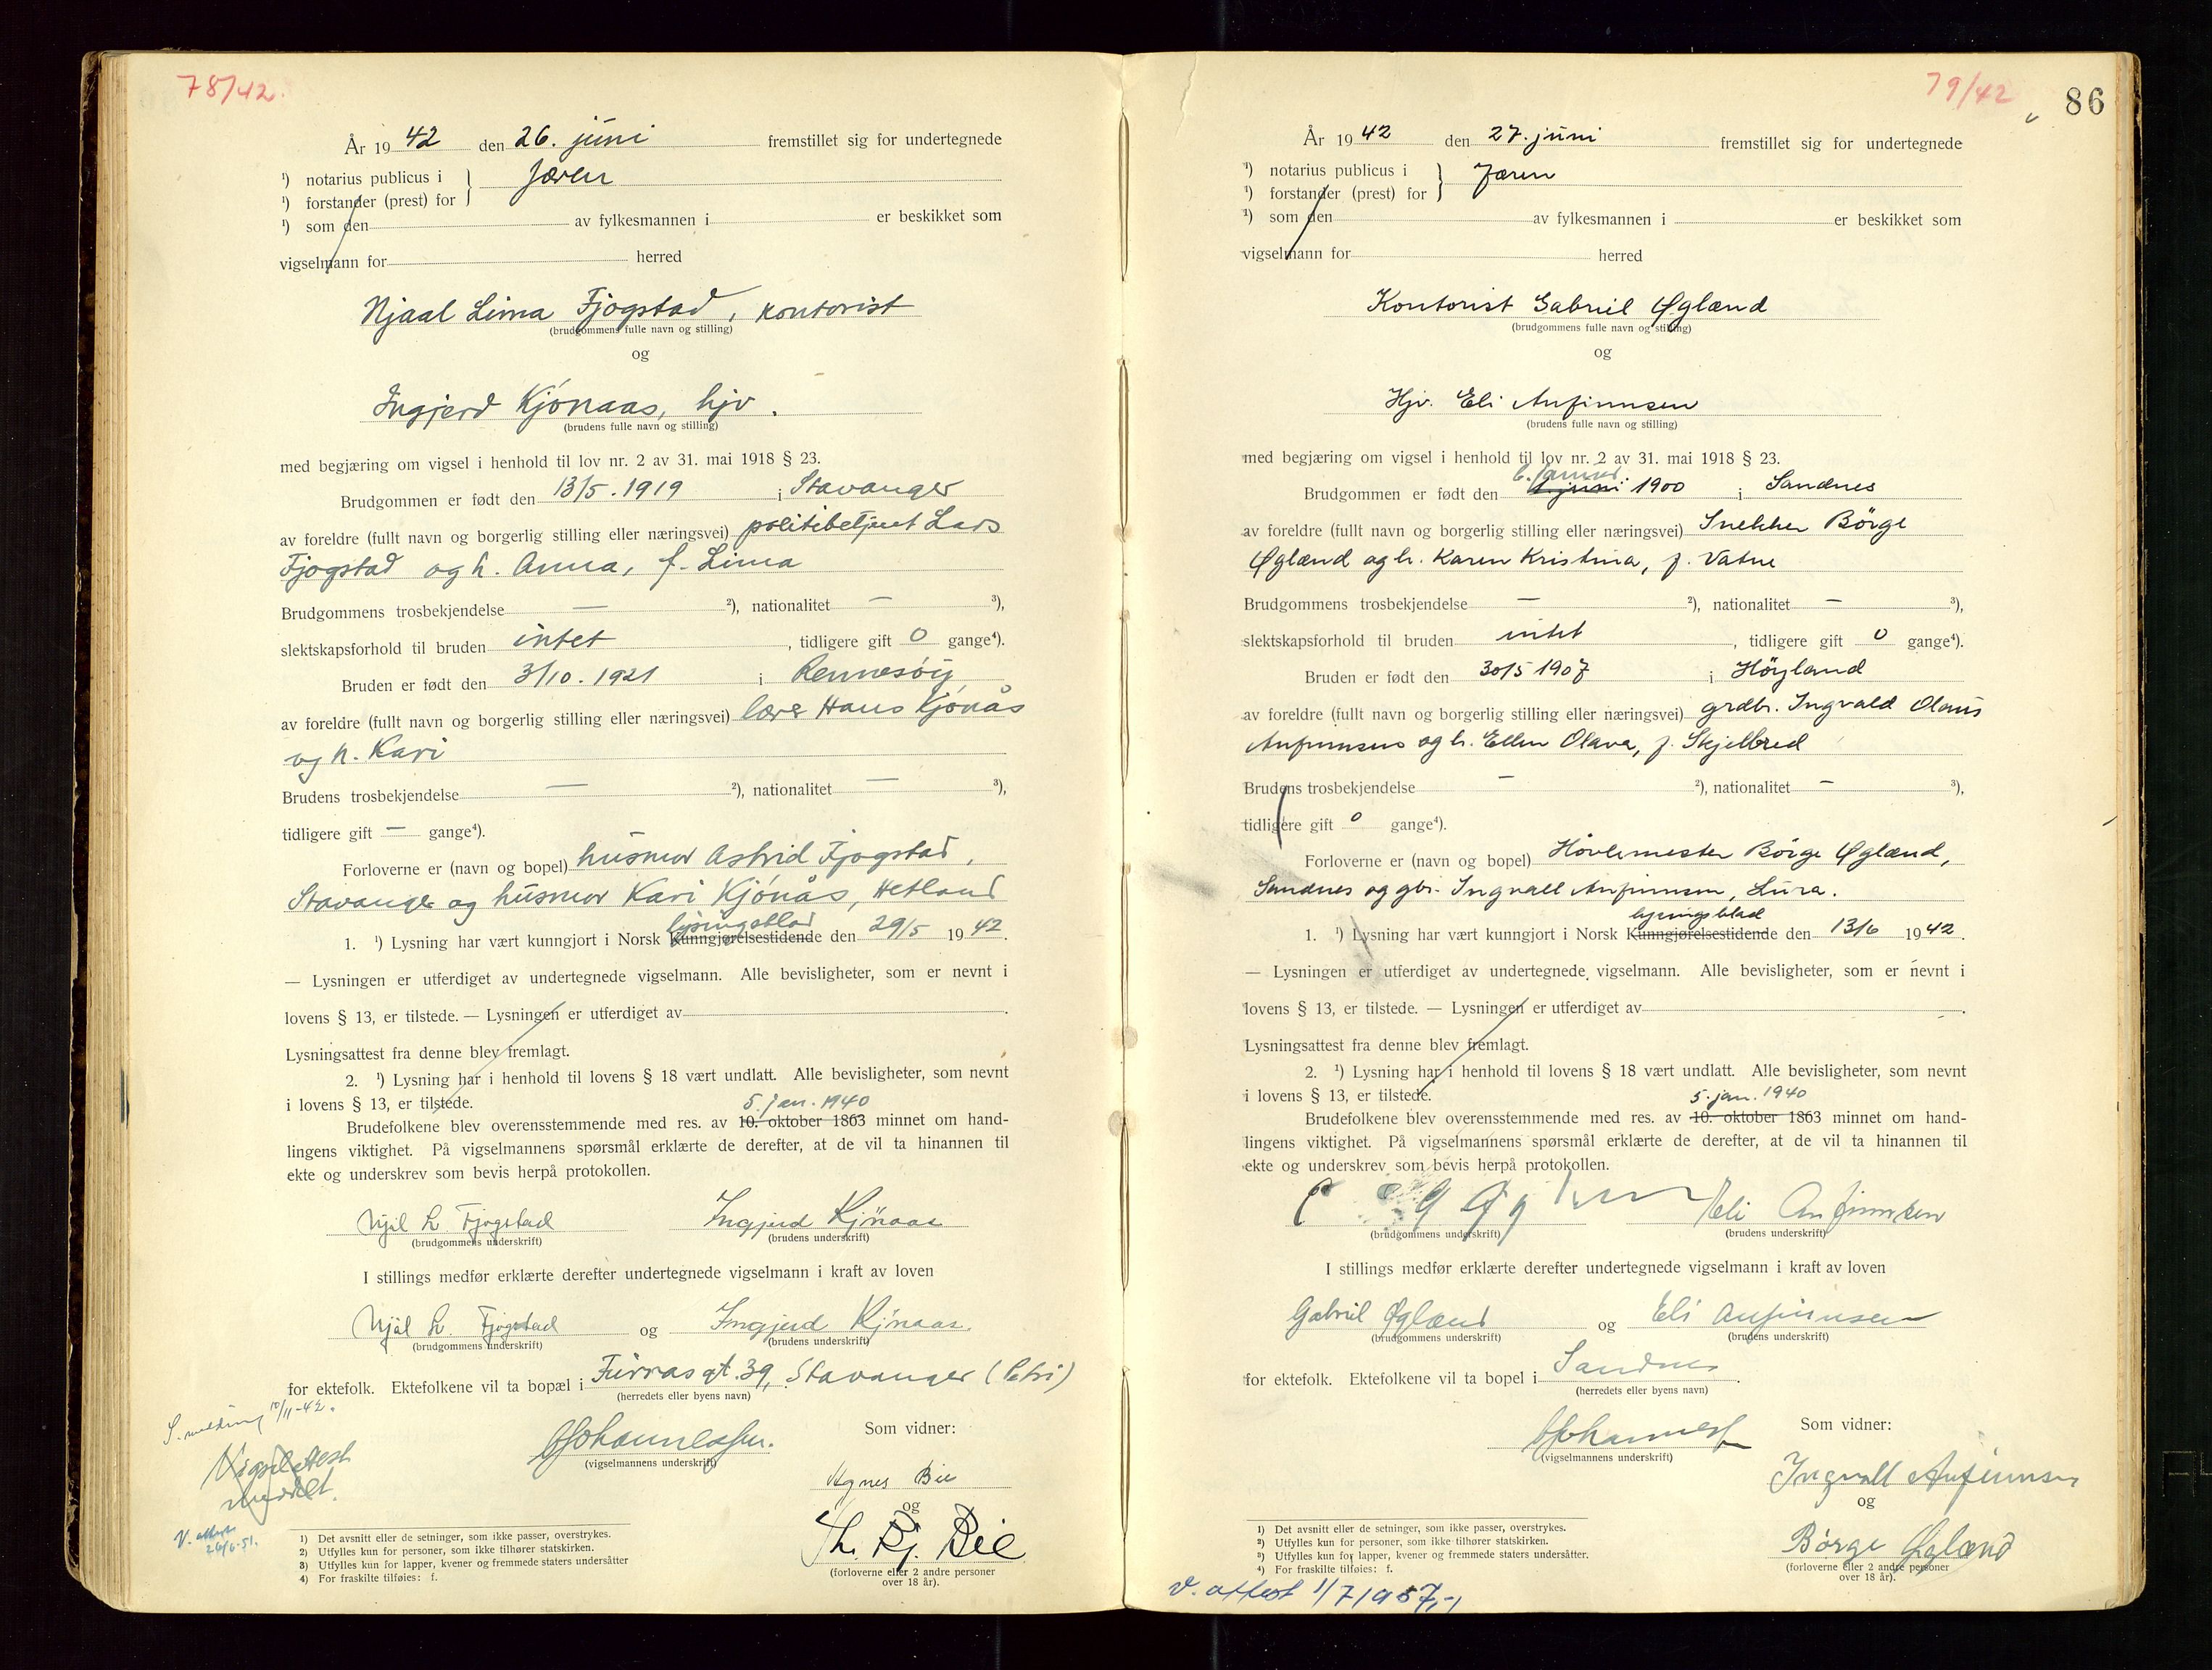 78/42.
År 19 42 den 26. juni fremstillet sig for undertegnede
¹) notarius publicus i } Jæren
¹) forstander (prest) for
¹) som den av fylkesmannen i er beskikket som
vigselmann for herred
Njaal Lima Fjogstad, kontorist
(brudgommens fulle navn og stilling)
og
Ingjerd Kjönaas, hjv.
(brudens fulle navn og stilling)
med begjæring om vigsel i henhold til lov nr. 2 av 31. mai 1918 § 23.
Brudgommen er født den 13/5. 1919 i Stavanger
av foreldre (fullt navn og borgerlig stilling eller næringsvei) politibetjent Lars
Fjogstad og h. Anna, f. Lima
Brudgommens trosbekjendelse — ²), nationalitet — ³),
slektskapsforhold til bruden intet, tidligere gift 0 gange⁴).
Bruden er født den 3/10. 1921 i Rennesöy
av foreldre (fullt navn og borgerlig stilling eller næringsvei) lærer Hans Kjönås
og h. Kari
Brudens trosbekjendelse — ²), nationalitet — ³),
tidligere gift — gange⁴).
Forloverne er (navn og bopel) husmor Astrid Fjogstad,
Stavanger og husmor Kari Kjönås, Hetland
lysingsblad
1. ¹) Lysning har vært kunngjort i Norsk Kunngjørelsestidende den 29/5 19 42.
— Lysningen er utferdiget av undertegnede vigselmann. Alle bevisligheter, som er nevnt i
lovens § 13, er tilstede. — Lysningen er utferdiget av .
Lysningsattest fra denne blev fremlagt.
2. ¹) Lysning har i henhold til lovens § 18 vært undlatt. Alle bevisligheter, som nevnt
i lovens § 13, er tilstede.
5. jan. 1940
Brudefolkene blev overensstemmende med res. av 10. oktober 1863 minnet om hand-
lingens viktighet. På vigselmannens spørsmål erklærte de derefter, at de vil ta hinannen til
ekte og underskrev som bevis herpå protokollen.
Njål L. Fjogstad Ingjerd Kjönaas
(brudgommens underskrift) (brudens underskrift)
I stillings medfør erklærte derefter undertegnede vigselmann i kraft av loven
Njål L. Fjogstad og Ingjerd Kjönaas.
(brudgommens underskrift) (brudens underskrift)
for ektefolk. Ektefolkene vil ta bopæl i Furrasgt. 39, Stavanger (Petri)
(herredets eller byens navn)
S. melding 10/11-42.
Som vidner:
(vigselmannens underskrift)
Vigselattest
meddelt.
Agnes Bie
og
Th. Kj. Bie
V. attest
26/6-51.
(forloverne eller 2 andre personer
over 18 år).
1) Det avsnitt eller de setninger, som ikke passer, overstrykes.
2) Utfylles kun for personer, som ikke tilhører statskirken.
3) Utfylles kun for lapper, kvener og fremmede staters undersåtter
4) For fraskilte tilføies: f.
79/42 86
År 19 42 den 27. juni fremstillet sig for undertegnede
¹) notarius publicus i } Jæren
¹) forstander (prest) for
¹) som den av fylkesmannen i er beskikket som
vigselmann for herred
Kontorist Gabriel Øglænd
(brudgommens fulle navn og stilling)
og
Hjv. Eli Anfinnsen
(brudens fulle navn og stilling)
med begjæring om vigsel i henhold til lov nr. 2 av 31. mai 1918 § 23.
6. januar
Brudgommen er født den juni 1900 i Sandnes
av foreldre (fullt navn og borgerlig stilling eller næringsvei) Snekker Börge
Øglænd og h. Karen Kristina, f. Vatne
Brudgommens trosbekjendelse — ²), nationalitet — ³),
slektskapsforhold til bruden intet, tidligere gift 0 gange⁴).
Bruden er født den 30/5 1907 i Höyland
av foreldre (fullt navn og borgerlig stilling eller næringsvei) grdbr. Ingvald Olaus
Anfinnsens og h. Ellen Olava, f. Skjelbred
Brudens trosbekjendelse — ²), nationalitet — ³),
tidligere gift 0 gange⁴).
Forloverne er (navn og bopel) Hövlemester Börge Øglænd,
Sandnes og gbr. Ingvall Anfinnsen, Lura.
lysningsblad
1. ¹) Lysning har vært kunngjort i Norsk Kunngjørelsestidende den 13/6 19 42.
— Lysningen er utferdiget av undertegnede vigselmann. Alle bevisligheter, som er nevnt i
lovens § 13, er tilstede. — Lysningen er utferdiget av .
Lysningsattest fra denne blev fremlagt.
2. ¹) Lysning har i henhold til lovens § 18 vært undlatt. Alle bevisligheter, som nevnt
i lovens § 13, er tilstede.
5. jan. 1940
Brudefolkene blev overensstemmende med res. av 10. oktober 1863 minnet om hand-
lingens viktighet. På vigselmannens spørsmål erklærte de derefter, at de vil ta hinannen til
ekte og underskrev som bevis herpå protokollen.
Eli Anfinnsen
(brudgommens underskrift) (brudens underskrift)
I stillings medfør erklærte derefter undertegnede vigselmann i kraft av loven
Gabriel Øglænd og Eli Anfinnsen
(brudgommens underskrift) (brudens underskrift)
for ektefolk. Ektefolkene vil ta bopel i Sandnes.
(herredets eller byens navn)
Som vidner:
(vigselmannens underskrift)
Ingvall Anfinnsen
og
Börge Øglænd
(forloverne eller 2 andre personer
over 18 år).
1) Det avsnitt eller de setninger, som ikke passer, overstrykes.
2) Utfylles kun for personer, som ikke tilhører statskirken.
3) Utfylles kun for lapper, kvener og fremmede staters undersåtter.
4) For fraskilte tilføies: f.
V. attest 1/7 1957,-